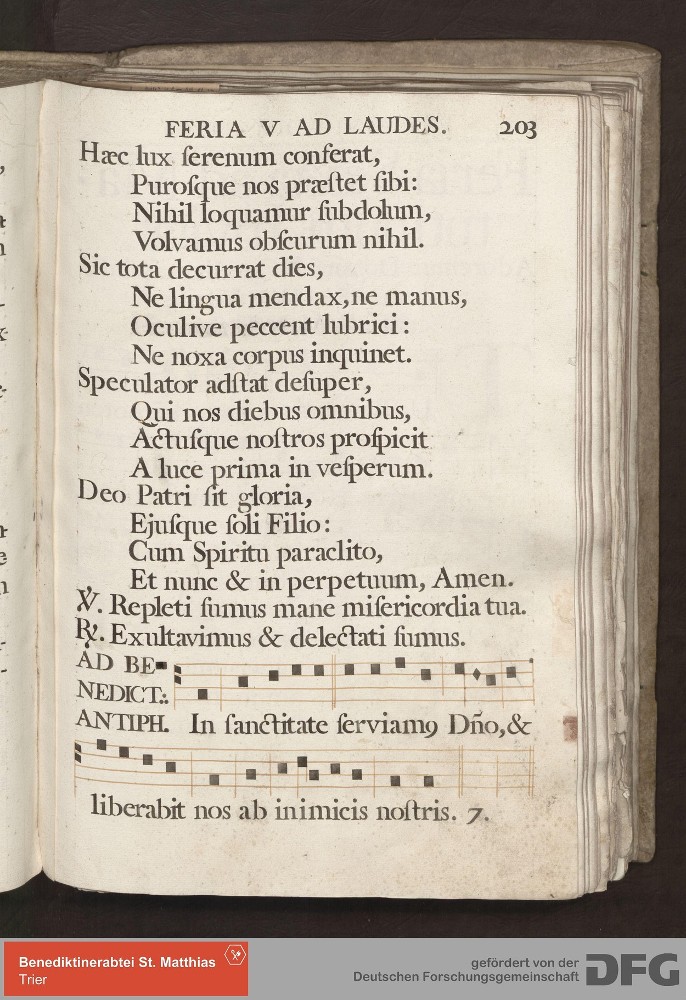 FERIA V AD LAUDES. 203
Hæc lux ſerenum conferat,
Puroſque nos præſtet ſibi:
Nihil loquamur ſubdolum,
Volvamus obſcurum nihil.
Sic tota decurrat dies,
Ne lingua mendax, ne manus,
Oculive peccent lubrici:
Ne noxa corpus inquinet.
Speculator adſtat deſuper,
Qui nos diebus omnibus,
Actuſque noſtros proſpicit
A luce prima in veſperum.
Deo Patri ſit gloria,
Ejuſque ſoli Filio:
Cum Spiritu paraclito,
Et nunc & in perpetuum, Amen.
℣. Repleti ſumus mane miſericordia tua.
℟. Exultavimus & delectati ſumus.
AD BE-
NEDICT.:
ANTIPH. In ſanctitate ſerviamꝯ Dño, &
liberabit nos ab inimicis noſtris. 7.
Benediktinerabtei St. Matthias
Trier
gefördert von der
Deutschen Forschungsgemeinschaft DFG